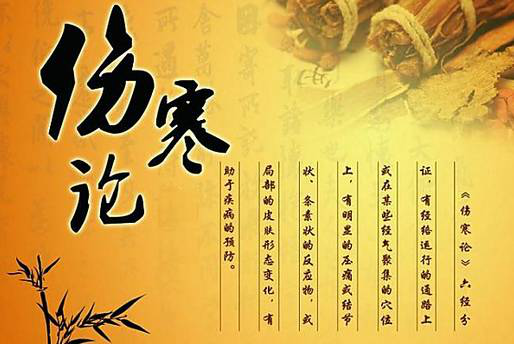 伤寒论
《伤寒论》六经分
证,有经络运行的通路上
或在某些经气聚集的穴位
上,有明显的压痛或结节
状、条索状的反应物,或
局部的皮肤形态变化,有
助于疾病的预防。